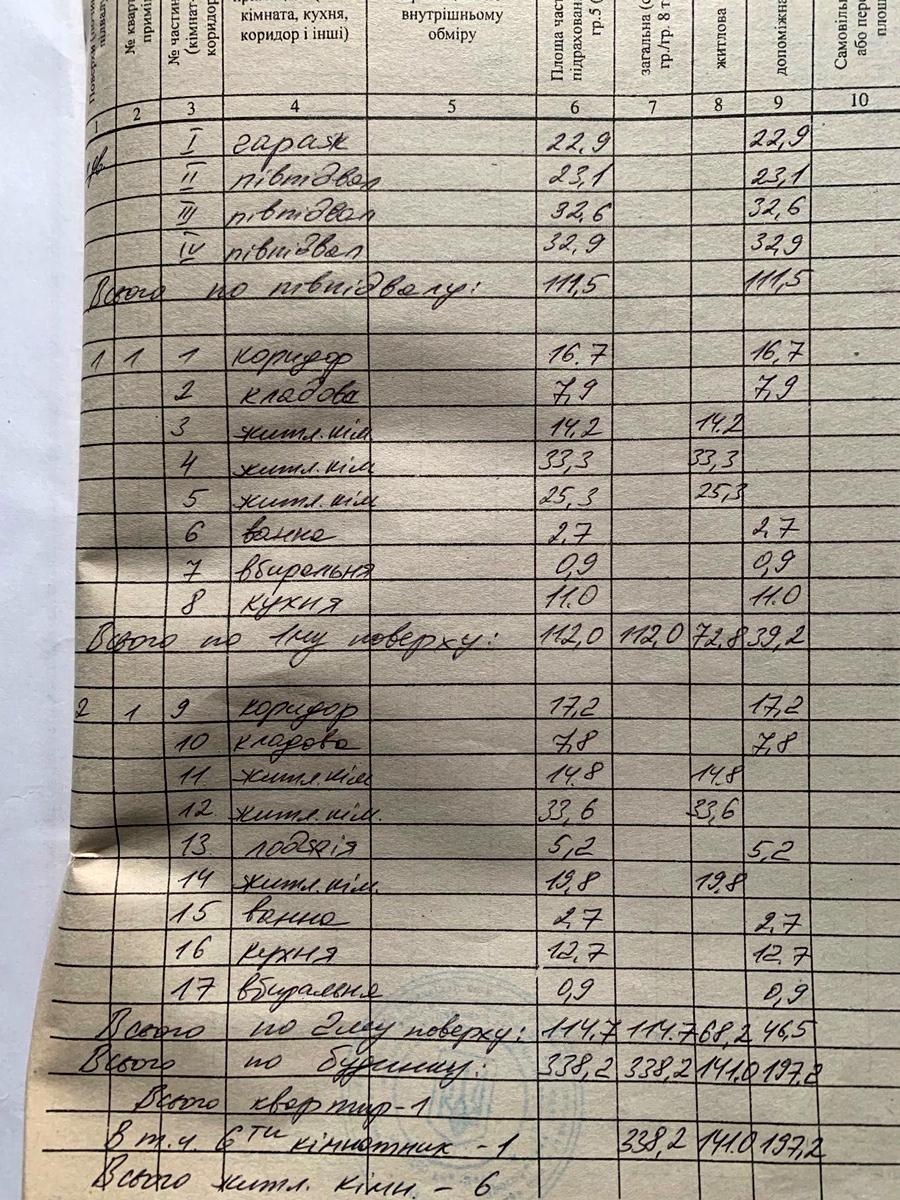 підвалу
№ кварт
приміщ
№ частин
(кімнат-
коридор
кімната, кухня,
коридор і інші)
внутрішньому
обміру
Площа част
підрахована
гр.5 (
загальна (с
гр./гр. 8 т
житлова
допоміжна
Самовільн
або пере
площ
1 2 3 4 5 6 7 8 9 10
I гараж 22,9 22,9
II півпідвал 23,1 23,1
III півпідвал 32,6 32,6
IV півпідвал 32,9 32,9
Всього по півпідвалу: 111,5 111,5
1 1 1 коридор 16.7 16,7
2 кладова 7,9 7,9
3 житл.кім 14,2 14.2
4 житл.кім 33,3 33,3
5 житл.кім 25,3 25,3
6 ванна 2,7 2,7
7 вбиральня 0,9 0,9
8 кухня 11.0 11.0
Всього по 1му поверху: 112,0 112,0 72.8 39,2
2 1 9 коридор 17,2 17,2
10 кладова 7,8 7,8
11 житл.кім 14.8 14,8
12 житл.кім. 33,6 33,6
13 лоджія 5,2 5,2
14 житл.кім. 19,8 19,8
15 ванна 2,7 2,7
16 кухня 12,7 12.7
17 вбиральня 0,9 0,9
Всього по 2му поверху: 114.7 114.7 68,2 46,5
Всього по будинку: 338,2 338,2 141.0 197,2
Всього квартир-1
В т.ч. 6ти кімнатних -1 338,2 141.0 197,2
Всього житл. кімн - 6